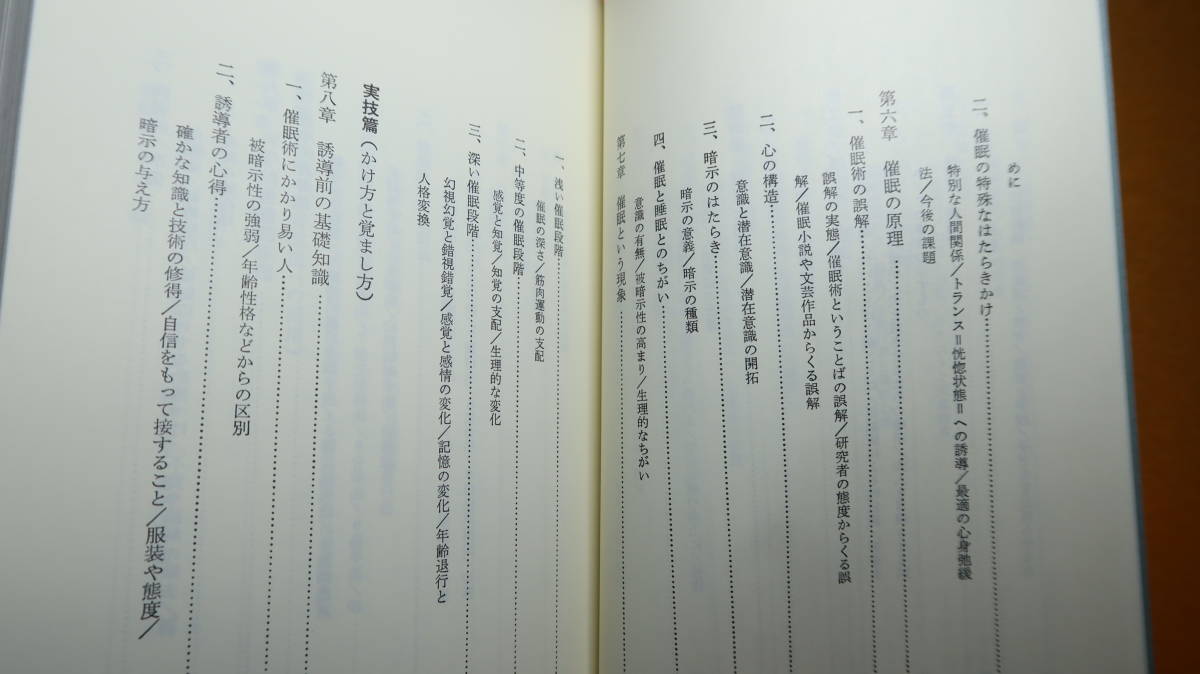 めに
二、催眠の特殊なはたらきかけ
特別な人間関係/トランス=恍惚状態=への誘導/最適の心身弛緩
法/今後の課題
第六章 催眠の原理
一、催眠術の誤解
誤解の実態/催眠術ということばの誤解/研究者の態度からくる誤
解/催眠小説や文芸作品からくる誤解
二、心の構造
意識と潜在意識/潜在意識の開拓
三、暗示のはたらき
暗示の意義/暗示の種類
四、催眠と睡眠とのちがい
意識の有無/被暗示性の高まり/生理的なちがい
第七章 催眠という現象
一、浅い催眠段階
催眠の深さ/筋肉運動の支配
二、中等度の催眠段階
感覚と知覚/知覚の支配/生理的な変化
三、深い催眠段階
幻視幻覚と錯視錯覚/感覚と感情の変化/記憶の変化/年齢退行と
人格変換
実技篇(かけ方と覚まし方)
第八章 誘導前の基礎知識
一、催眠術にかかり易い人
被暗示性の強弱/年齢性格などからの区別
二、誘導者の心得
確かな知識と技術の修得/自信をもって接すること/服装や態度/
暗示の与え方